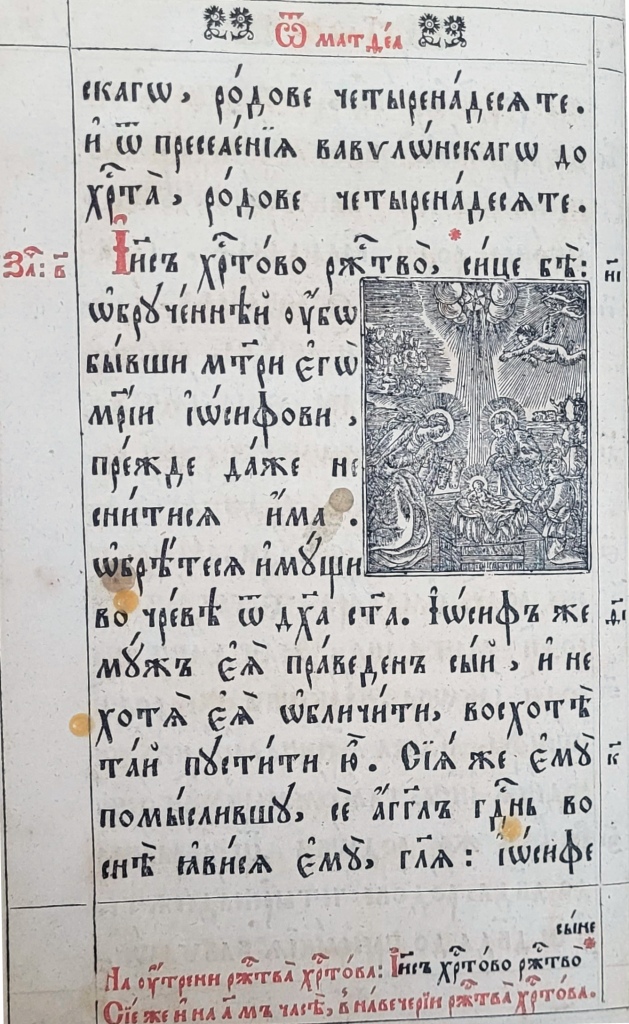 Ѿ матѳе́а
скагѡ, ро́дове четырена́десѧте.
и҆ ѿ преселе́нїѧ вавѵлѡ́нскагѡ до
хрⷭ҇та̀, ро́дове четырена́десѧте.
І҆и҃съ хрⷭ҇то́во ржⷭ҇тво̀, си́це бѣ̀:
и҃і
За҃ч: в҃
ѡ҆брꙋче́ннѣй ᲂу҆́бѡ
бы́вши мт҃ри є҆гѡ̀
мр҃і́и і҆ѡ́сифови,
пре́жде да́же не
сни́тисѧ и҆́ма.
ѡ҆брѣ́тесѧ и҆мꙋ́щи
во чре́вѣ ѿ дх҃а ст҃а. І҆ѡ́сифъ же
ѳ҃і
мꙋ́жъ є҆ѧ̀ пра́веденъ сы́й, и҆ не
хотѧ̀ є҆ѧ̀ ѡ҆бличи́ти, восхотѣ̀
та́й пꙋсти́ти ю҆̀. Сїѧ̑ же є҆мꙋ̀
к҃
помы́слившꙋ, сѐ а҆́гг҃лъ гдⷭ҇нь во
снѣ̀ ꙗ҆ви́сѧ є҆мꙋ̀, гл҃ѧ: і҆ѡ́сифе
сы́не
На ᲂу҆́трени ржⷭ҇тва̀ хрⷭ҇то́ва: І҆и҃съ хрⷭ҇то́во ржⷭ҇тво̀
Сїе́ же и҆ на а҃ мъ часѣ̀, в̾ наве́черїи ржⷭ҇тва̀ хрⷭ҇то́ва.